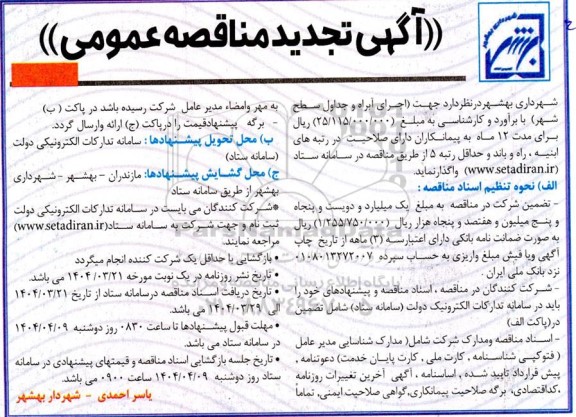 ((آگهی تجدید مناقصه عمومی))
شهرداری بهشهر در نظر دارد جهت (اجرای آبراه و جداول سطح
شهر) با برآورد و کارشناسی به مبلغ (۲۵/۱۱۵/۰۰۰/۰۰۰) ریال
برای مدت ۱۲ ماه به پیمانکاران دارای صلاحیت در رتبه های
ابنیه ، راه و باند و حداقل رتبه ۵ از طریق مناقصه در سامانه ستاد
(www.setadiran.ir) واگذار نماید.
الف) نحوه تنظیم اسناد مناقصه :
- تضمین شرکت در مناقصه به مبلغ یک میلیارد و دویست و پنجاه
و پنج میلیون و هفتصد و پنجاه هزار ریال (۱/۲۵۵/۷۵۰/۰۰۰) ریال
به صورت ضمانت نامه بانکی دارای اعتبار سه (۳) ماهه از تاریخ چاپ
آگهی ویا فیش مبلغ واریزی به حساب سپرده ۰۱۰۸۰۱۳۲۷۲۰۰۷
نزد بانک ملی ایران .
- شرکت کنندگان در مناقصه ، اسناد مناقصه و پیشنهادهای خود را
باید در سامانه تدارکات الکترونیک دولت (سامانه ستاد) شامل تضمین
در(پاکت الف)
- اسناد مناقصه ومدارک شرکت شامل( مدارک شناسایی مدیر عامل
( فتوکپی شناسنامه ، کارت ملی ، کارت پایان خدمت) دعوتنامه ,
پیش قرارداد تایید شده , اساسنامه , آگهی آخرین تغییرات روزنامه
,کداقتصادی، برگه صلاحیت پیمانکاری,گواهی صلاحیت ایمنی, تماماً
به مهر وامضاء مدیر عامل شرکت رسیده باشد در پاکت ( ب)
- برگه پیشنهادقیمت را درپاکت (ج) ارائه وارسال گردد.
ب) محل تحویل پیشنهادها : سامانه تدارکات الکترونیکی دولت
(سامانه ستاد)
ج) محل گشایش پیشنهادها: مازندران - بهشهر - شهرداری
بهشهر از طریق سامانه ستاد
*شرکت کنندگان می بایست در سامانه تدارکات الکترونیکی دولت
ثبت نام و جهت شرکت به سامانه ستاد(www.setadiran.ir)
مراجعه نمایند.
• بازگشایی با حداقل یک شرکت کننده انجام میگردد
• تاریخ نشر روزنامه در یک نوبت مورخه ۱۴۰۴/۰۳/۲۱ می باشد.
• تاریخ دریافت اسناد مناقصه درسامانه ستاد از تاریخ ۱۴۰۴/۰۳/۲۱
الی ۱۴۰۴/۰۳/۲۸ می باشد.
• مهلت قبول پیشنهادها تا ساعت ۰۸۳۰ روز دوشنبه ۱۴۰۴/۰۴/۰۹
در سامانه ستاد می باشد.
• تاریخ جلسه بازگشایی اسناد مناقصه و قیمتهای پیشنهادی در سامانه
ستاد روز دوشنبه ۱۴۰۴/۰۴/۰۹ ساعت ۰۹۰۰ می باشد.
یاسر احمدی - شهردار بهشهر